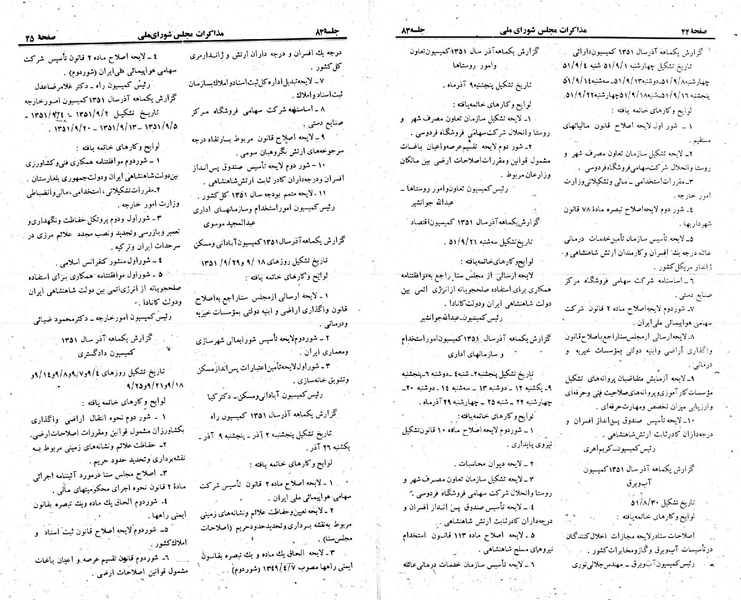 صفحه ۲۴
مذاکرات مجلس شورای ملی
جلسه ۸۳
گزارش یکماهه آذر سال ۱۳۵۱ کمیسیون دارائی
تاریخ تشکیل ۵۱/۹/۱ شنبه ۵۱/۹/۴
چهارشنبه ۵۱/۹/۸ دوشنبه ۵۱/۹/۱۳ سه‌شنبه ۵۱/۹/۱۴
پنجشنبه ۵۱/۹/۱۶ شنبه ۵۱/۹/۱۸ چهارشنبه ۵۱/۹/۲۲
لوایح وکارهای خاتمه یافته :
۱ - شور اول لایحه اصلاح قانون مالیاتهای
مستقیم .
۲ - لایحه تشکیل سازمان تعاون مصرف شهر و
روستا وانحلال شرکت سهامی فروشگاه فردوسی .
۳ - مقررات استخدامی - مالی وتشکیلاتی وزارت
امور خارجه .
۴ - شور دوم لایحه اصلاح تبصره ماده ۷۸ قانون
شهرداریها .
۵ - لایحه تأسیس سازمان تأمین خدمات درمانی
عائله درجه یک افسران وکارمندان ارتش شاهنشاهی و
ژاندارمری کل کشور .
۶ - اساسنامه شرکت سهامی فروشگاه مرکز
صنایع دستی .
۷ - شوردوم لایحه اصلاح ماده ۲ قانون شرکت
سهامی هواپیمائی ملی ایران .
۸ - لایحه ارسالی از مجلس سنا راجع باصلاح قانون
واگذاری اراضی وابنیه دولتی بمؤسسات خیریه و
درمانی .
۹ - لایحه آزمایش متقاضیان پروانه‌های تشکیل
مؤسسات کارآموزی وپروانه‌های صلاحیت فنی وحرفه‌ای
وارزیابی میزان تخصص ومهارت حرفه‌ای .
۱۰ - لایحه تأسیس صندوق پس‌انداز افسران و
درجه‌داران کادر ثابت ارتش شاهنشاهی .
رئیس کمیسیون - کریم اهری
گزارش یکماهه آذر سال ۱۳۵۱ کمیسیون
آب وبرق
تاریخ تشکیل ۵۱/۸/۳۰
لوایح وکارهای خاتمه یافته :
اصلاحات سنا در لایحه مجازات اخلال کنندگان
در تأسیسات آب وبرق وگاز ومخابرات کشور .
رئیس کمیسیون آب وبرق - مهندس جلالی نوری
گزارش یکماهه آذر سال ۱۳۵۱ کمیسیون تعاون
وامور روستاها
تاریخ تشکیل پنجشنبه ۹ آذرماه .
لوایح وکارهای خاتمه یافته :
۱ - لایحه تشکیل سازمان تعاون مصرف شهر و
روستا وانحلال شرکت سهامی فروشگاه فردوسی .
۲ - شور دوم لایحه تقسیم عرصه واعیان باغات
مشمول قوانین ومقررات اصلاحات ارضی بین مالکان
وزارعان مربوط .
رئیس کمیسیون تعاون وامور روستاها -
عبدالله جوانشیر
گزارش یکماهه آذر سال ۱۳۵۱ کمیسیون اقتصاد
تاریخ تشکیل سه‌شنبه ۵۱/۹/۲۱
لوایح وکارهای خاتمه یافته :
لایحه ارسالی از مجلس سنا راجع به موافقتنامه
همکاری برای استفاده صلحجویانه از انرژی اتمی بین
دولت شاهنشاهی ایران ودولت کانادا .
رئیس کمیسیون - عبدالله جوانشیر
گزارش یکماهه آذر سال ۱۳۵۱ کمیسیون امور استخدام
و سازمانهای اداری
تاریخ تشکیل پنجشنبه ۲ شنبه ۴ دوشنبه ۶ پنجشنبه
۹ یکشنبه ۱۲ دوشنبه ۱۳ سه‌شنبه ۱۴ دوشنبه ۲۰
چهارشنبه ۲۲ شنبه ۲۵ چهارشنبه ۲۹ آذرماه .
لوایح وکارهای خاتمه یافته :
۱ - شوردوم لایحه اصلاح ماده ۱۰ قانون تشکیل
نیروی پایداری .
۲ - لایحه دیوان محاسبات .
۳ - لایحه تشکیل سازمان تعاون مصرف شهر و
روستا وانحلال شرکت سهامی فروشگاه فردوسی .
۴ - لایحه تأسیس صندوق پس انداز افسران و
درجه‌داران کادر ثابت ارتش شاهنشاهی .
۵ - لایحه اصلاح ماده ۱۱۳ قانون استخدام
نیروهای مسلح شاهنشاهی .
۶ - لایحه تأسیس سازمان خدمات درمانی عائله
جلسه ۸۳
مذاکرات مجلس شورای ملی
صفحه ۲۵
درجه یک افسران و درجه داران ارتش و ژاندارمری
کل کشور .
۷ - لایحه تبدیل اداره کل ثبت اسناد واملاک بسازمان
ثبت اسناد و املاک .
۸ - اساسنامه شرکت سهامی فروشگاه مرکز
صنایع دستی .
۹ - لایحه اصلاح قانون مربوط بارتقاء درجه
سرجوخه‌های ارتش بگروهبان سومی .
۱۰ - لایحه تأسیس صندوق پس‌انداز
افسران ودرجه‌داران کادر ثابت ارتش شاهنشاهی .
۱۱ - لایحه متمم بودجه سال ۱۳۵۱ کل کشور .
رئیس کمیسیون امور استخدام وسازمانهای اداری
عبدالمجید موسوی
گزارش یکماهه آذر سال ۱۳۵۱ کمیسیون آبادانی ومسکن
تاریخ تشکیل روزهای ۹/۱۸ و ۵۱/۹/۲۹
لوایح وکارهای خاتمه یافته :
۱ - لایحه ارسالی از مجلس سنا راجع به اصلاح
قانون واگذاری اراضی وابنیه دولتی بمؤسسات خیریه
ودرمانی .
۲ - شوردوم لایحه تأسیس شورایعالی شهرسازی
ومعماری ایران .
۳ - شور اول لایحه تأمین اعتبارات پس‌انداز مسکن
وتشویق خانه‌سازی .
رئیس کمیسیون آبادانی ومسکن - دکتر کیا
گزارش یکماهه آذر سال ۱۳۵۱ کمیسیون راه
تاریخ تشکیل پنجشنبه ۲ آذر - پنجشنبه ۹ آذر -
یکشنبه ۲۶ آذر .
لوایح وکارهای خاتمه یافته :
۱ - لایحه اصلاح ماده ۲ قانون تأسیس شرکت
سهامی هواپیمائی ملی ایران .
۲ - لایحه تعیین وحفاظت علائم ونشانه‌های زمینی
مربوط به نقشه برداری وتحدید حدود حریم (اصلاحات
مجلس سنا) .
۳ - لایحه الحاق یک ماده ویک تبصره بقانون
ایمنی راهها مصوب ۱۳۴۹/۴/۷ (شوردوم)
۴ - لایحه اصلاح ماده ۲ قانون تأسیس شرکت
سهامی هواپیمائی ملی ایران (شوردوم) .
رئیس کمیسیون راه - دکتر غلامرضا عدل
گزارش یکماهه آذر سال ۱۳۵۱ کمیسیون امور خارجه
تاریخ تشکیل ۱۳۵۱/۹/۲ - ۱۳۵۱/۹/۴ -
۱۳۵۱/۹/۵ - ۱۳۵۱/۹/۱۳ - ۱۳۵۱/۹/۲۰ .
لوایح وکارهای خاتمه یافته :
۱ - شور دوم موافقتنامه همکاری فنی وکشاورزی
بین دولت شاهنشاهی ایران ودولت جمهوری بلغارستان .
۲ - مقررات تشکیلاتی ، استخدامی ، مالی وانضباطی
وزارت امور خارجه .
۳ - شور اول ودوم پروتکل حفاظت ونگهداری و
تعمیر وبازرسی وتجدید ونصب مجدد علائم مرزی در
سرحدات ایران وترکیه .
۴ - شور اول منشور کنفرانس اسلامی .
۵ - شور اول موافقتنامه همکاری برای استفاده
صلحجویانه از انرژی اتمی بین دولت شاهنشاهی ایران
ودولت کانادا .
رئیس کمیسیون امور خارجه - دکتر محمود ضیائی
گزارش یکماهه آذر سال ۱۳۵۱
کمیسیون دادگستری
تاریخ تشکیل روزهای ۹/۴ و ۹/۷ و ۹/۸ و ۹/۱۴ و
۹/۱۸ و ۹/۲۱ و ۹/۲۵
لوایح وکارهای خاتمه یافته :
۱ - شور دوم نحوه انتقال اراضی واگذاری
بکشاورزان مشمول قوانین ومقررات اصلاحات ارضی .
۲ - حفاظت علائم ونشانه‌های زمینی مربوط به
نقشه‌برداری وتحدید حدود حریم .
۳ - اصلاح مجلس سنا در مورد آئین‌نامه اجرائی
ماده ۲ قانون نحوه اجرای محکومیتهای مالی .
۴ - شوردوم الحاق یک ماده ویک تبصره بقانون
ایمنی راهها .
۵ - شوردوم اصلاح قانون ثبت اسناد و
املاک کشور .
۶ - شوردوم قانون تقسیم عرصه و اعیان باغات
مشمول قوانین اصلاحات ارضی .